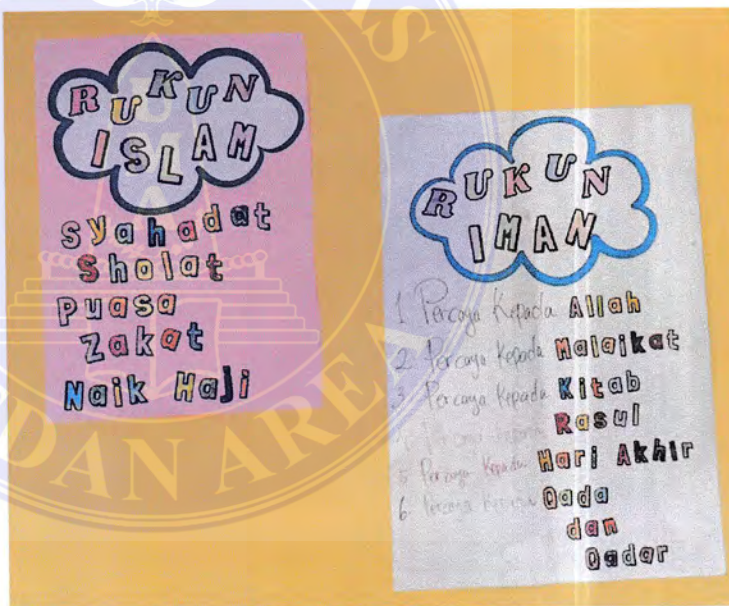 RUKUN
ISLAM
Syahadat
Sholat
Puasa
Zakat
Naik Haji
RUKUN
IMAN
1. Percaya Kepada Allah
2. Percaya Kepada Malaikat
3. Percaya Kepada Kitab
Percaya Kepada Rasul
5. Percaya Kepada Hari Akhir
6. Percaya Kepada Qada
dan
Qadar
DAN AREA